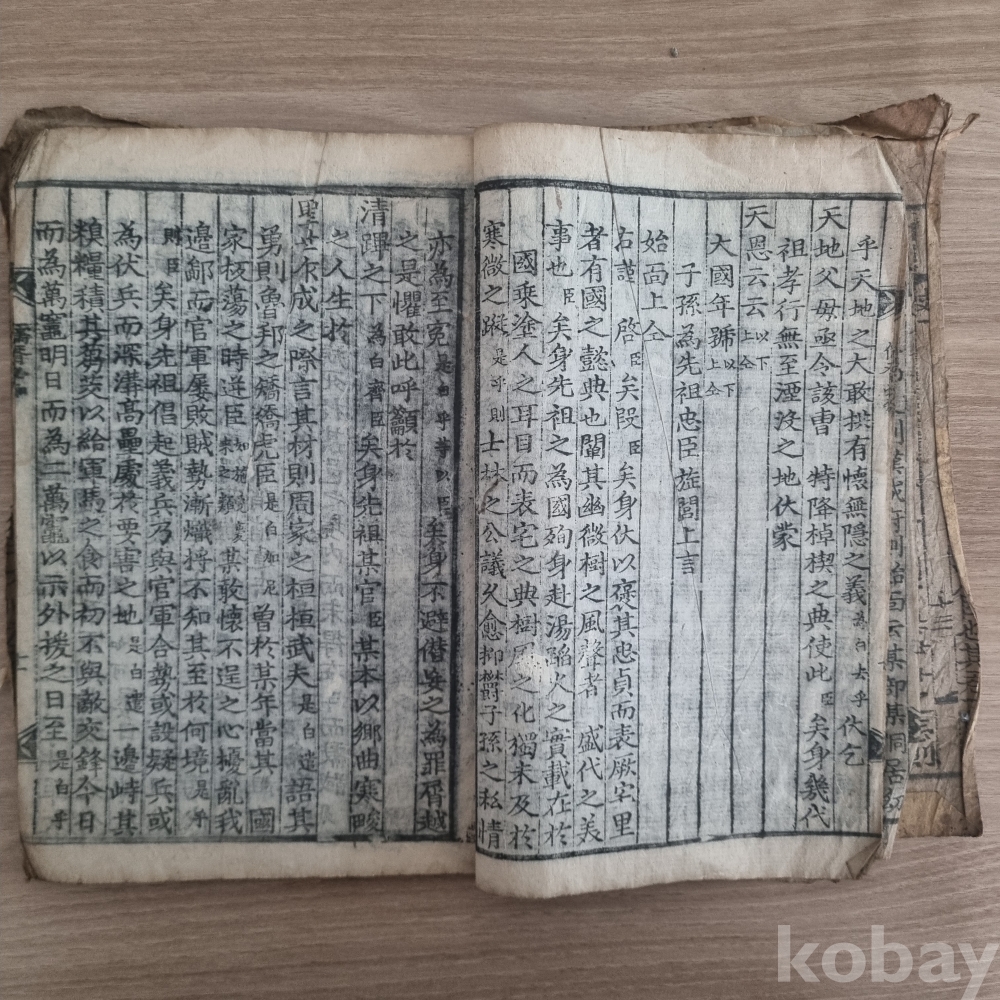 乎天地之大敢拱有懷無隱之義為白去乎伏乞
天地父母亟令該曺 特降棹楔之典使此臣矣身幾代
祖孝行無至湮沒之地伏蒙
天恩云云以下上仝
大國年號以下上仝
子孫為先祖忠臣旌閭上言
始面上仝
右謹 啓臣矣段臣矣身伏以褒其忠貞而表厥宅里
者有國之懿典也闡其幽微樹之風聲者 盛代之美
事也臣矣身先祖之為國殉身赴湯蹈火之實載在於
國乘塗人之耳目而表宅之典樹風之化獨未及於
寒微之蹤是乎則士林之公議久愈抑欝子孫之私情
亦為至寃是白乎等以臣矣身不避僣妄之為罪屑越
之是懼敢此呼籲於
清蹕之下為白齊臣矣身先祖某官臣某本以鄉曲寒畯
之人生於
成之際言其材則周家之桓桓武夫是白遣語其
勇則魯邦之矯矯虎臣是白如尼曽於某年當其 國
家板蕩之時逆臣某敢懷不逞之心擾亂我
邊鄙而官軍屢敗賊勢漸熾捋不知其至於何境是乎
則臣矣身先祖倡起義兵乃與官軍合勢或設疑兵或
為伏兵而深溝高壘處於要害之地是白遣一邊峙其
糗糧積其芻茭以給軍馬之食而初不與敵交鋒今日
而為萬竈明日而為二萬竈以示外援之日至是白乎
kobay